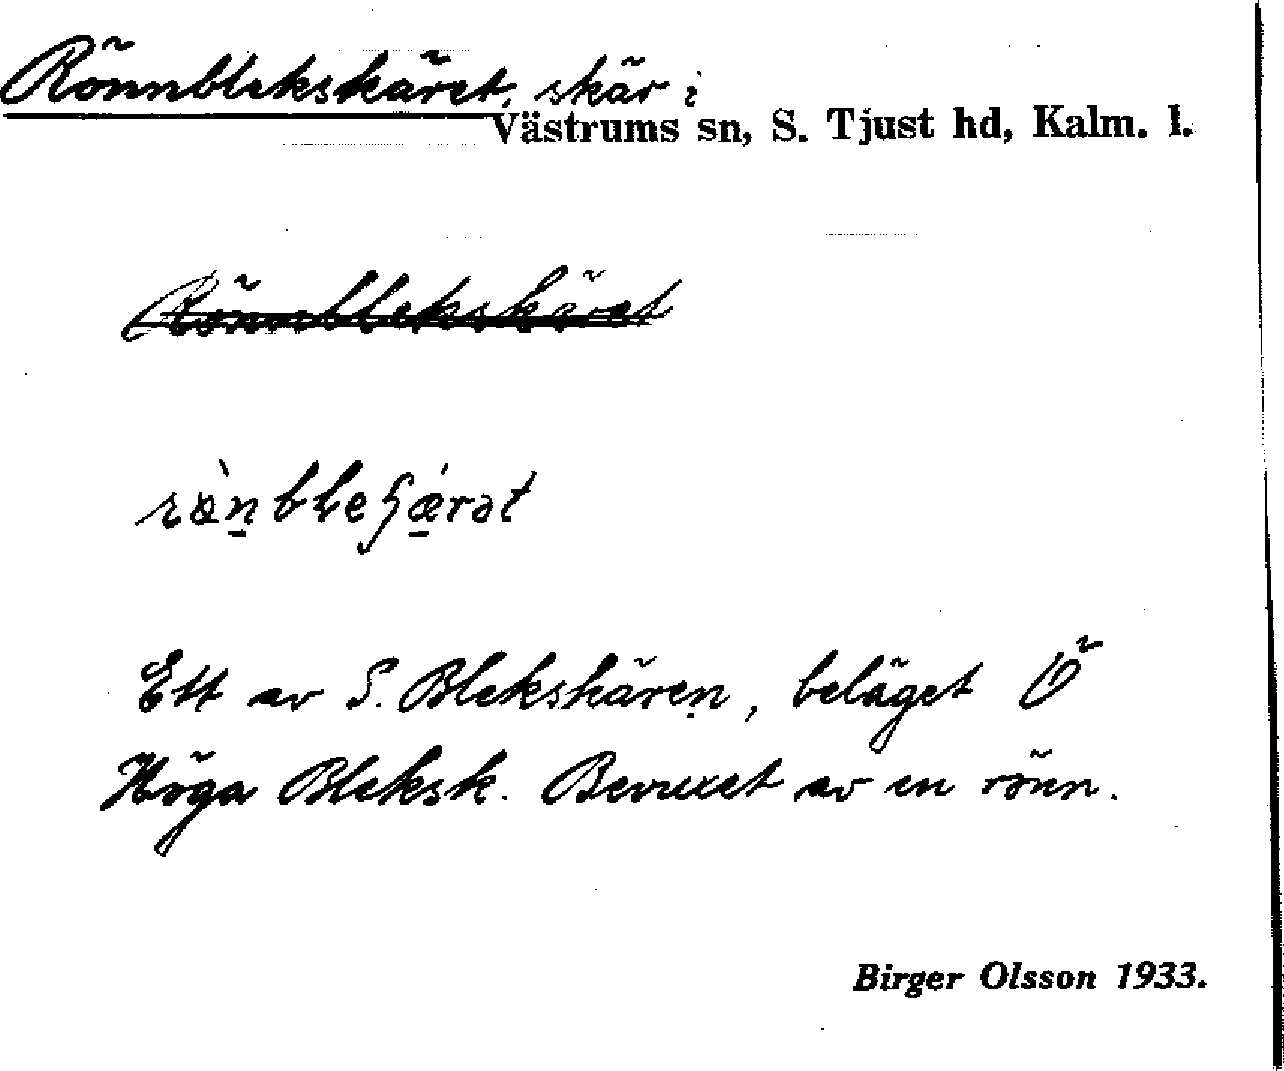 Rönnblekskäret, skär i
Västrums sn, S. Tjust hd, Kalm. l.
Rönnblekskäret
Ett av S. Blekskären, beläget Ö
Höga Bleksk. Bevuxet av en rönn.
Birger Olsson 1933.